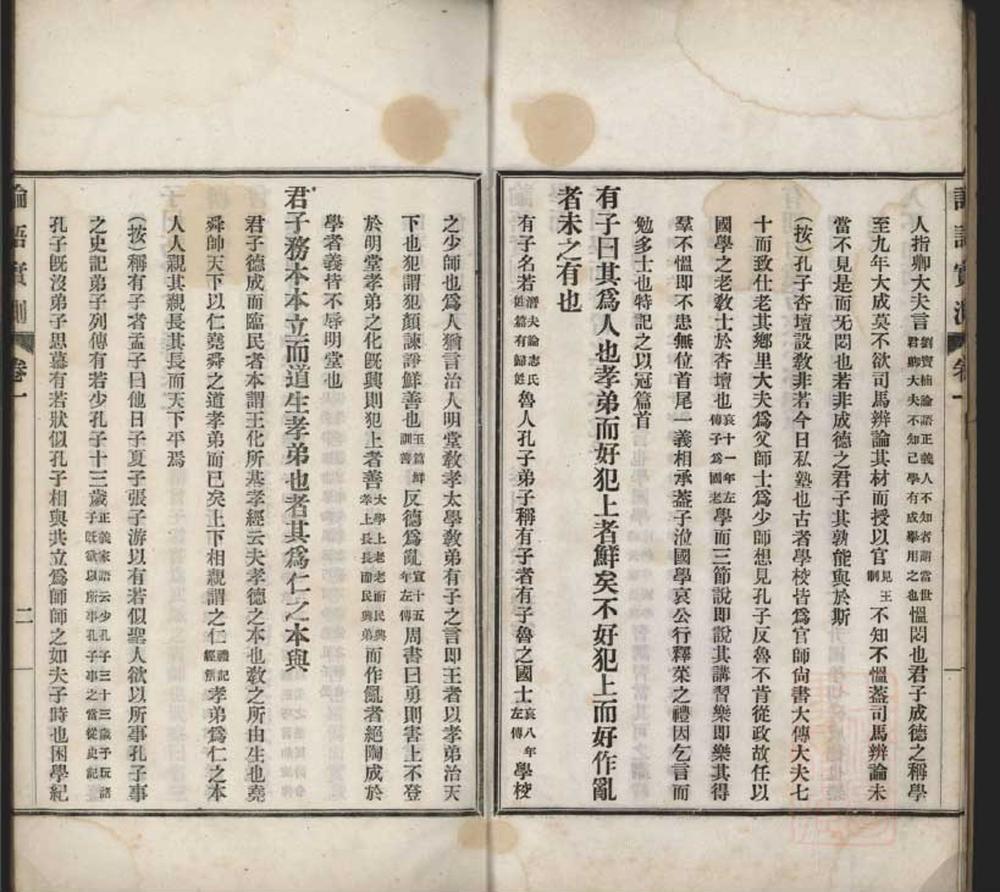 人指卿大夫言劉寶楠論語正義人不知者謂當世君卿大夫不知己學有成舉用之也慍悶也君子成德之稱學
至九年大成莫不欲司馬辨論其材而授以官見王制不知不慍蓋司馬辨論未
當不見是而无悶也若非成德之君子其孰能與於斯
(按)孔子杏壇設教非若今日私塾也古者學校皆爲官師尚書大傳大夫七
十而致仕老其鄉里大夫爲父師士爲少師想見孔子反魯不肯從政故任以
國學之老教士於杏壇也哀十一年左傳子爲國老學而三節說即說其講習樂即樂其得
羣不慍即不患無位首尾一義相承蓋子涖國學哀公行釋菜之禮因乞言而
勉多士也特記之以冠篇首
有子曰其爲人也孝弟而好犯上者鮮矣不好犯上而好作亂
者未之有也
有子名若潛夫論志氏姓篇有歸姓魯人孔子弟子稱有子者有子魯之國士哀八年左傳學校
之少師也爲人猶言治人明堂教孝太學教弟有子之言即王者以孝弟治天
下也犯謂犯顏諫諍鮮善也玉篇鮮訓善反德爲亂宣十五年左傳周書曰勇則害上不登
於明堂孝弟之化既興則犯上者善大學上老老而民興孝上長長而民興弟而作亂者絕陶成於
學者義皆不辱明堂也
君子務本本立而道生孝弟也者其爲仁之本與
君子德成而臨民者本謂王化所基孝經云夫孝德之本也教之所由生也堯
舜帥天下以仁堯舜之道孝弟而已矣上下相親謂之仁禮記經解孝弟爲仁之本
人人親其親長其長而天下平焉
(按)稱有子者孟子曰他日子夏子張子游以有若似聖人欲以所事孔子事
之史記弟子列傳有若少孔子十三歲正義家語云少孔子三十三歲予玩諸子既欲以所事孔子事之當從史記
孔子既沒弟子思慕有若狀似孔子相與共立爲師師之如夫子時也困學紀
論語實測
卷一
二